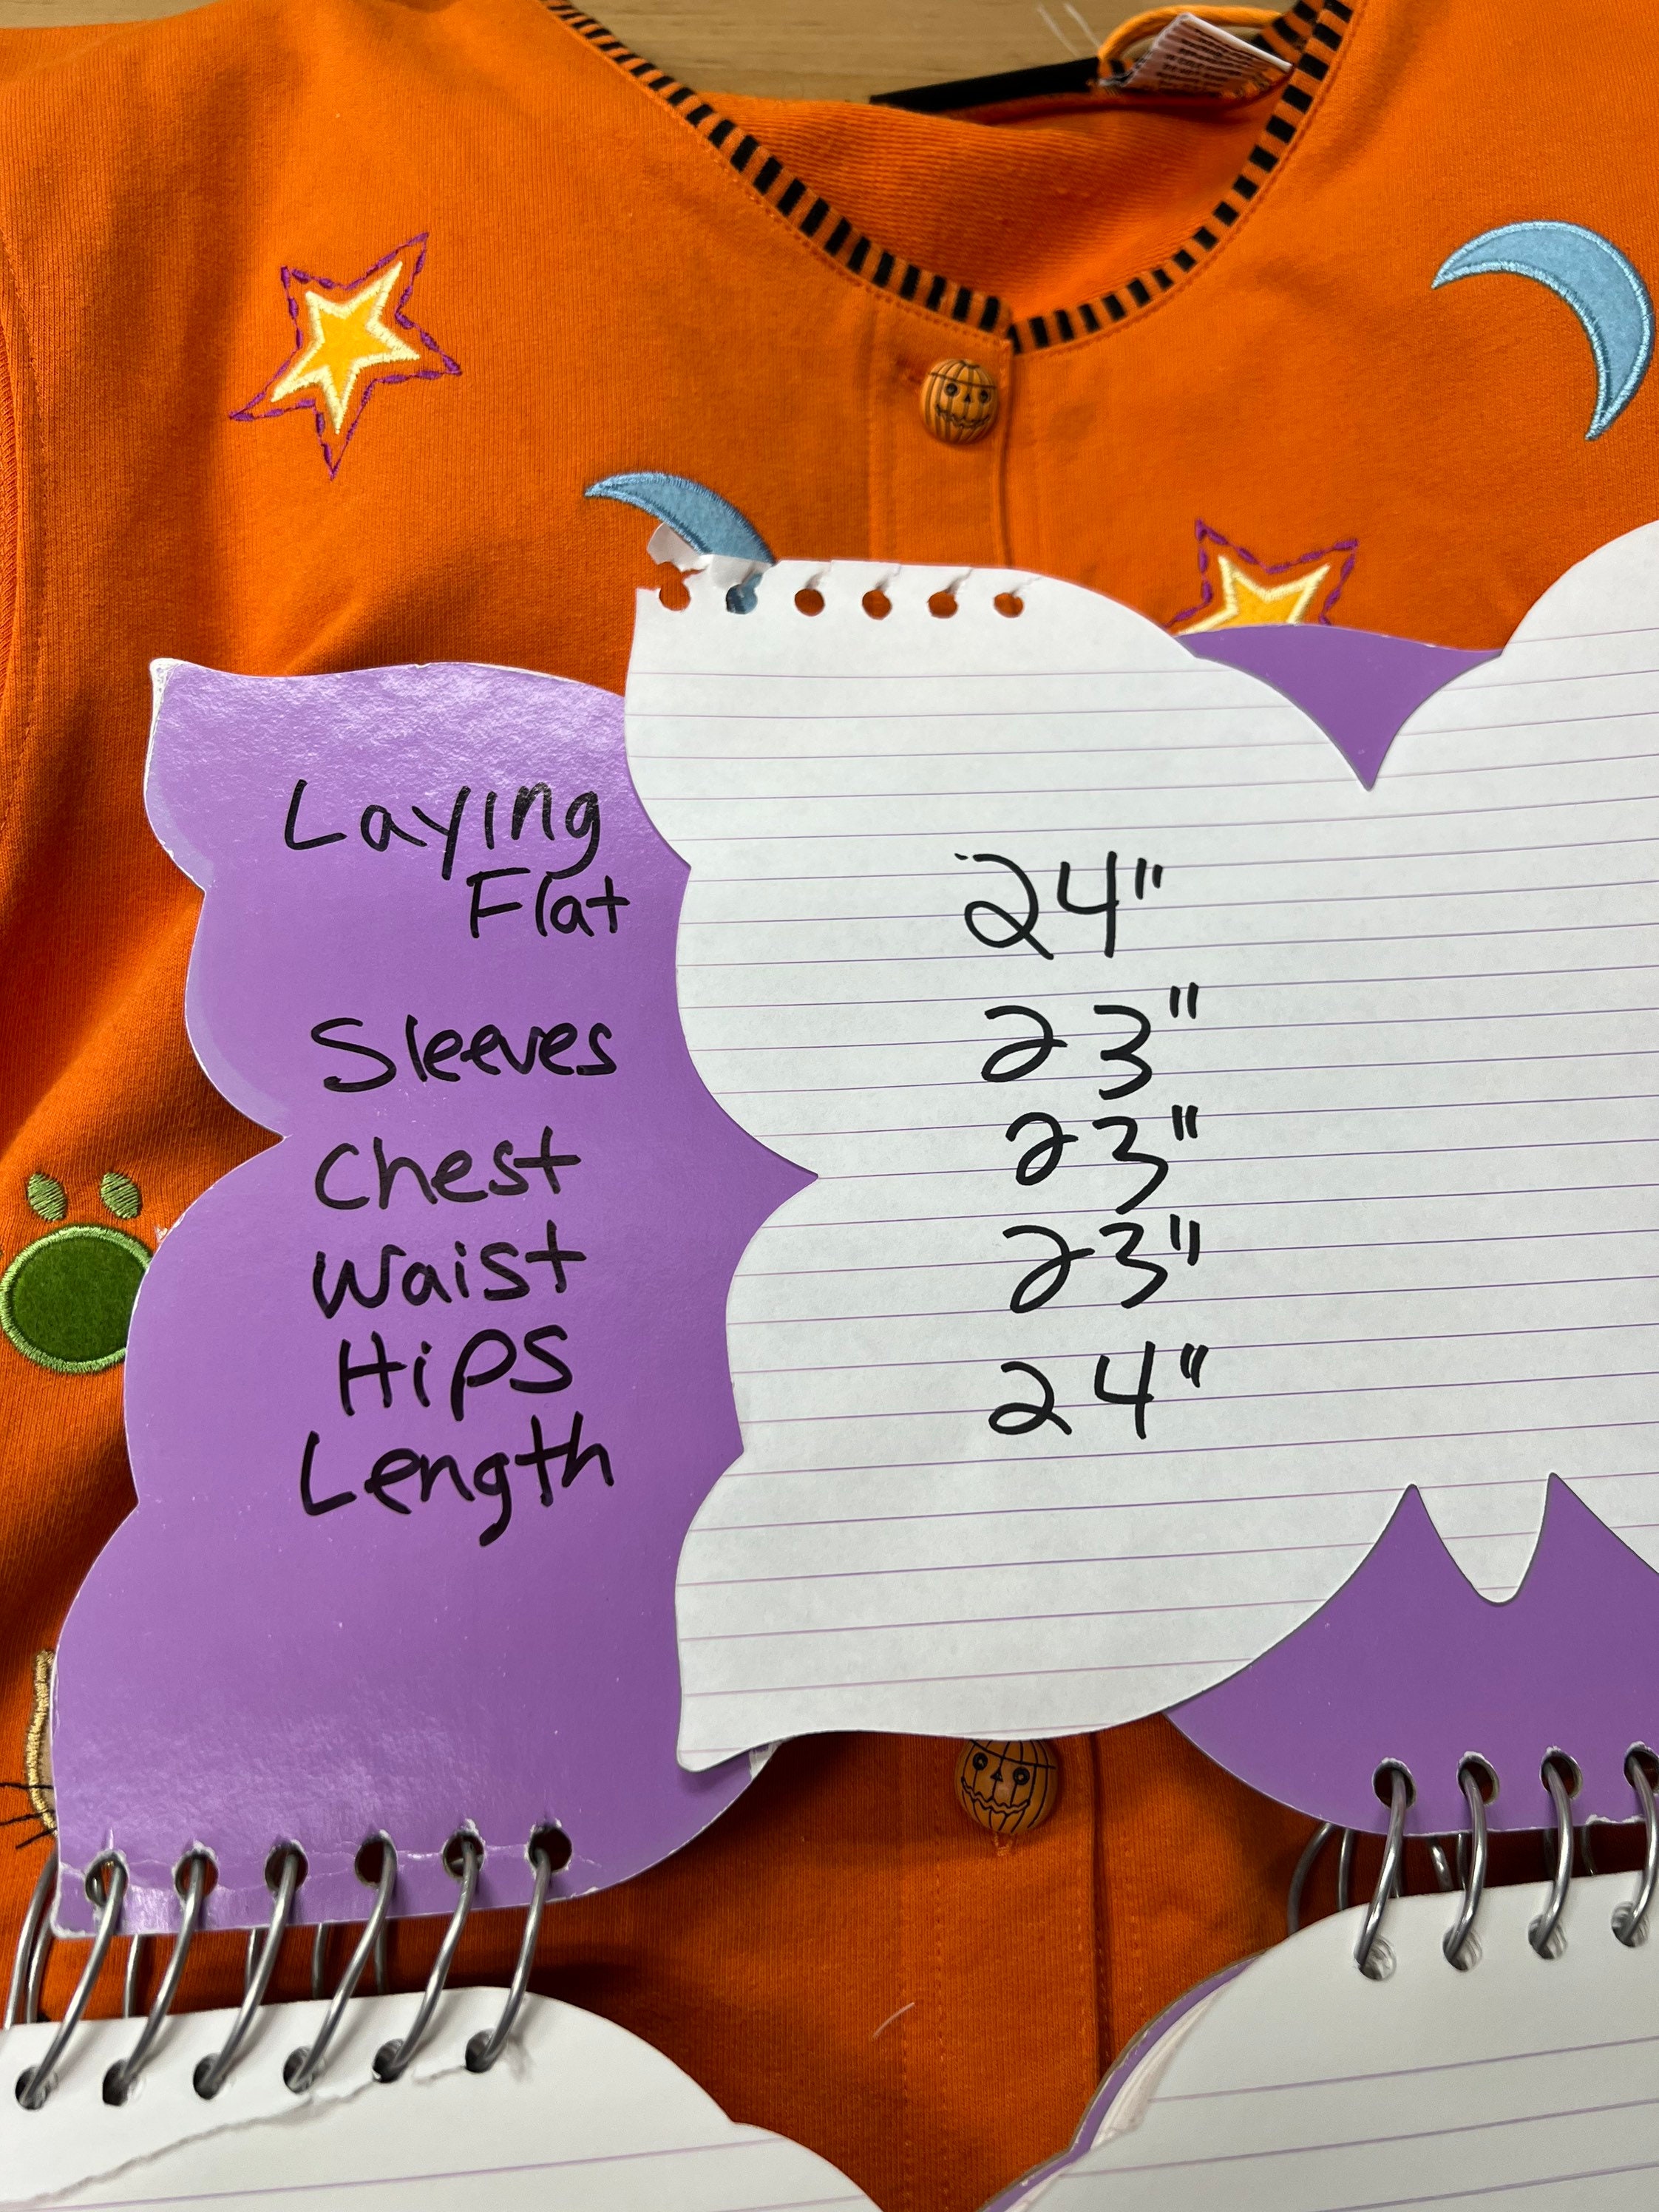 Laying
Flat
Sleeves
Chest
Waist
Hips
Length
24"
23"
23"
23"
24"